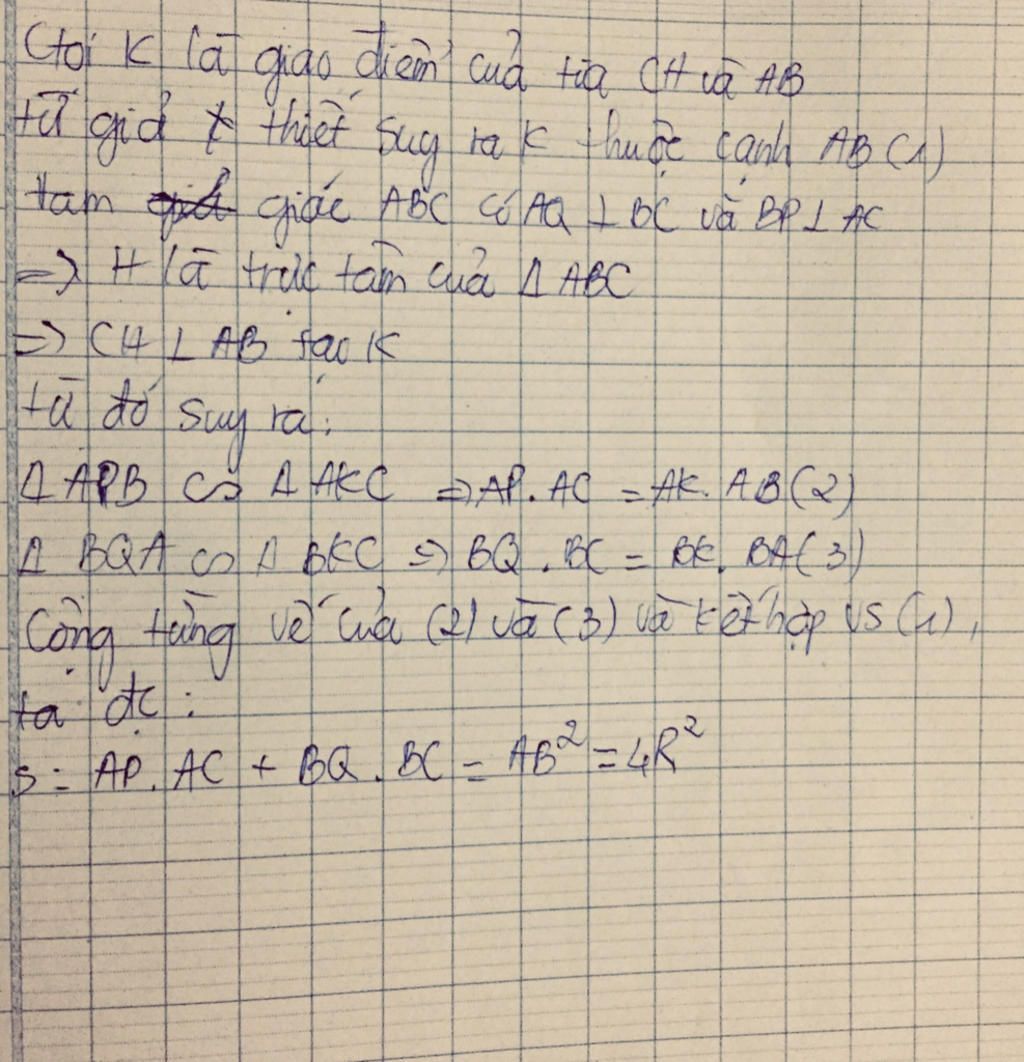 Gọi K là giao điểm của tia CH và AB
từ giả thiết suy ra K thuộc cạnh AB (1)
tam giác ABC có AQ ⊥ BC và BP ⊥ AC
=> H là trực tâm của Δ ABC
=> CH ⊥ AB tại K
từ đó suy ra:
Δ APB ∽ Δ AKC => AP. AC = AK. AB (2)
Δ BQA ∽ Δ BKC => BQ . BC = BK. BA (3)
Cộng từng vế của (2) và (3) và kết hợp vs (1),
ta đc :
S = AP. AC + BQ . BC = AB² = 4R²